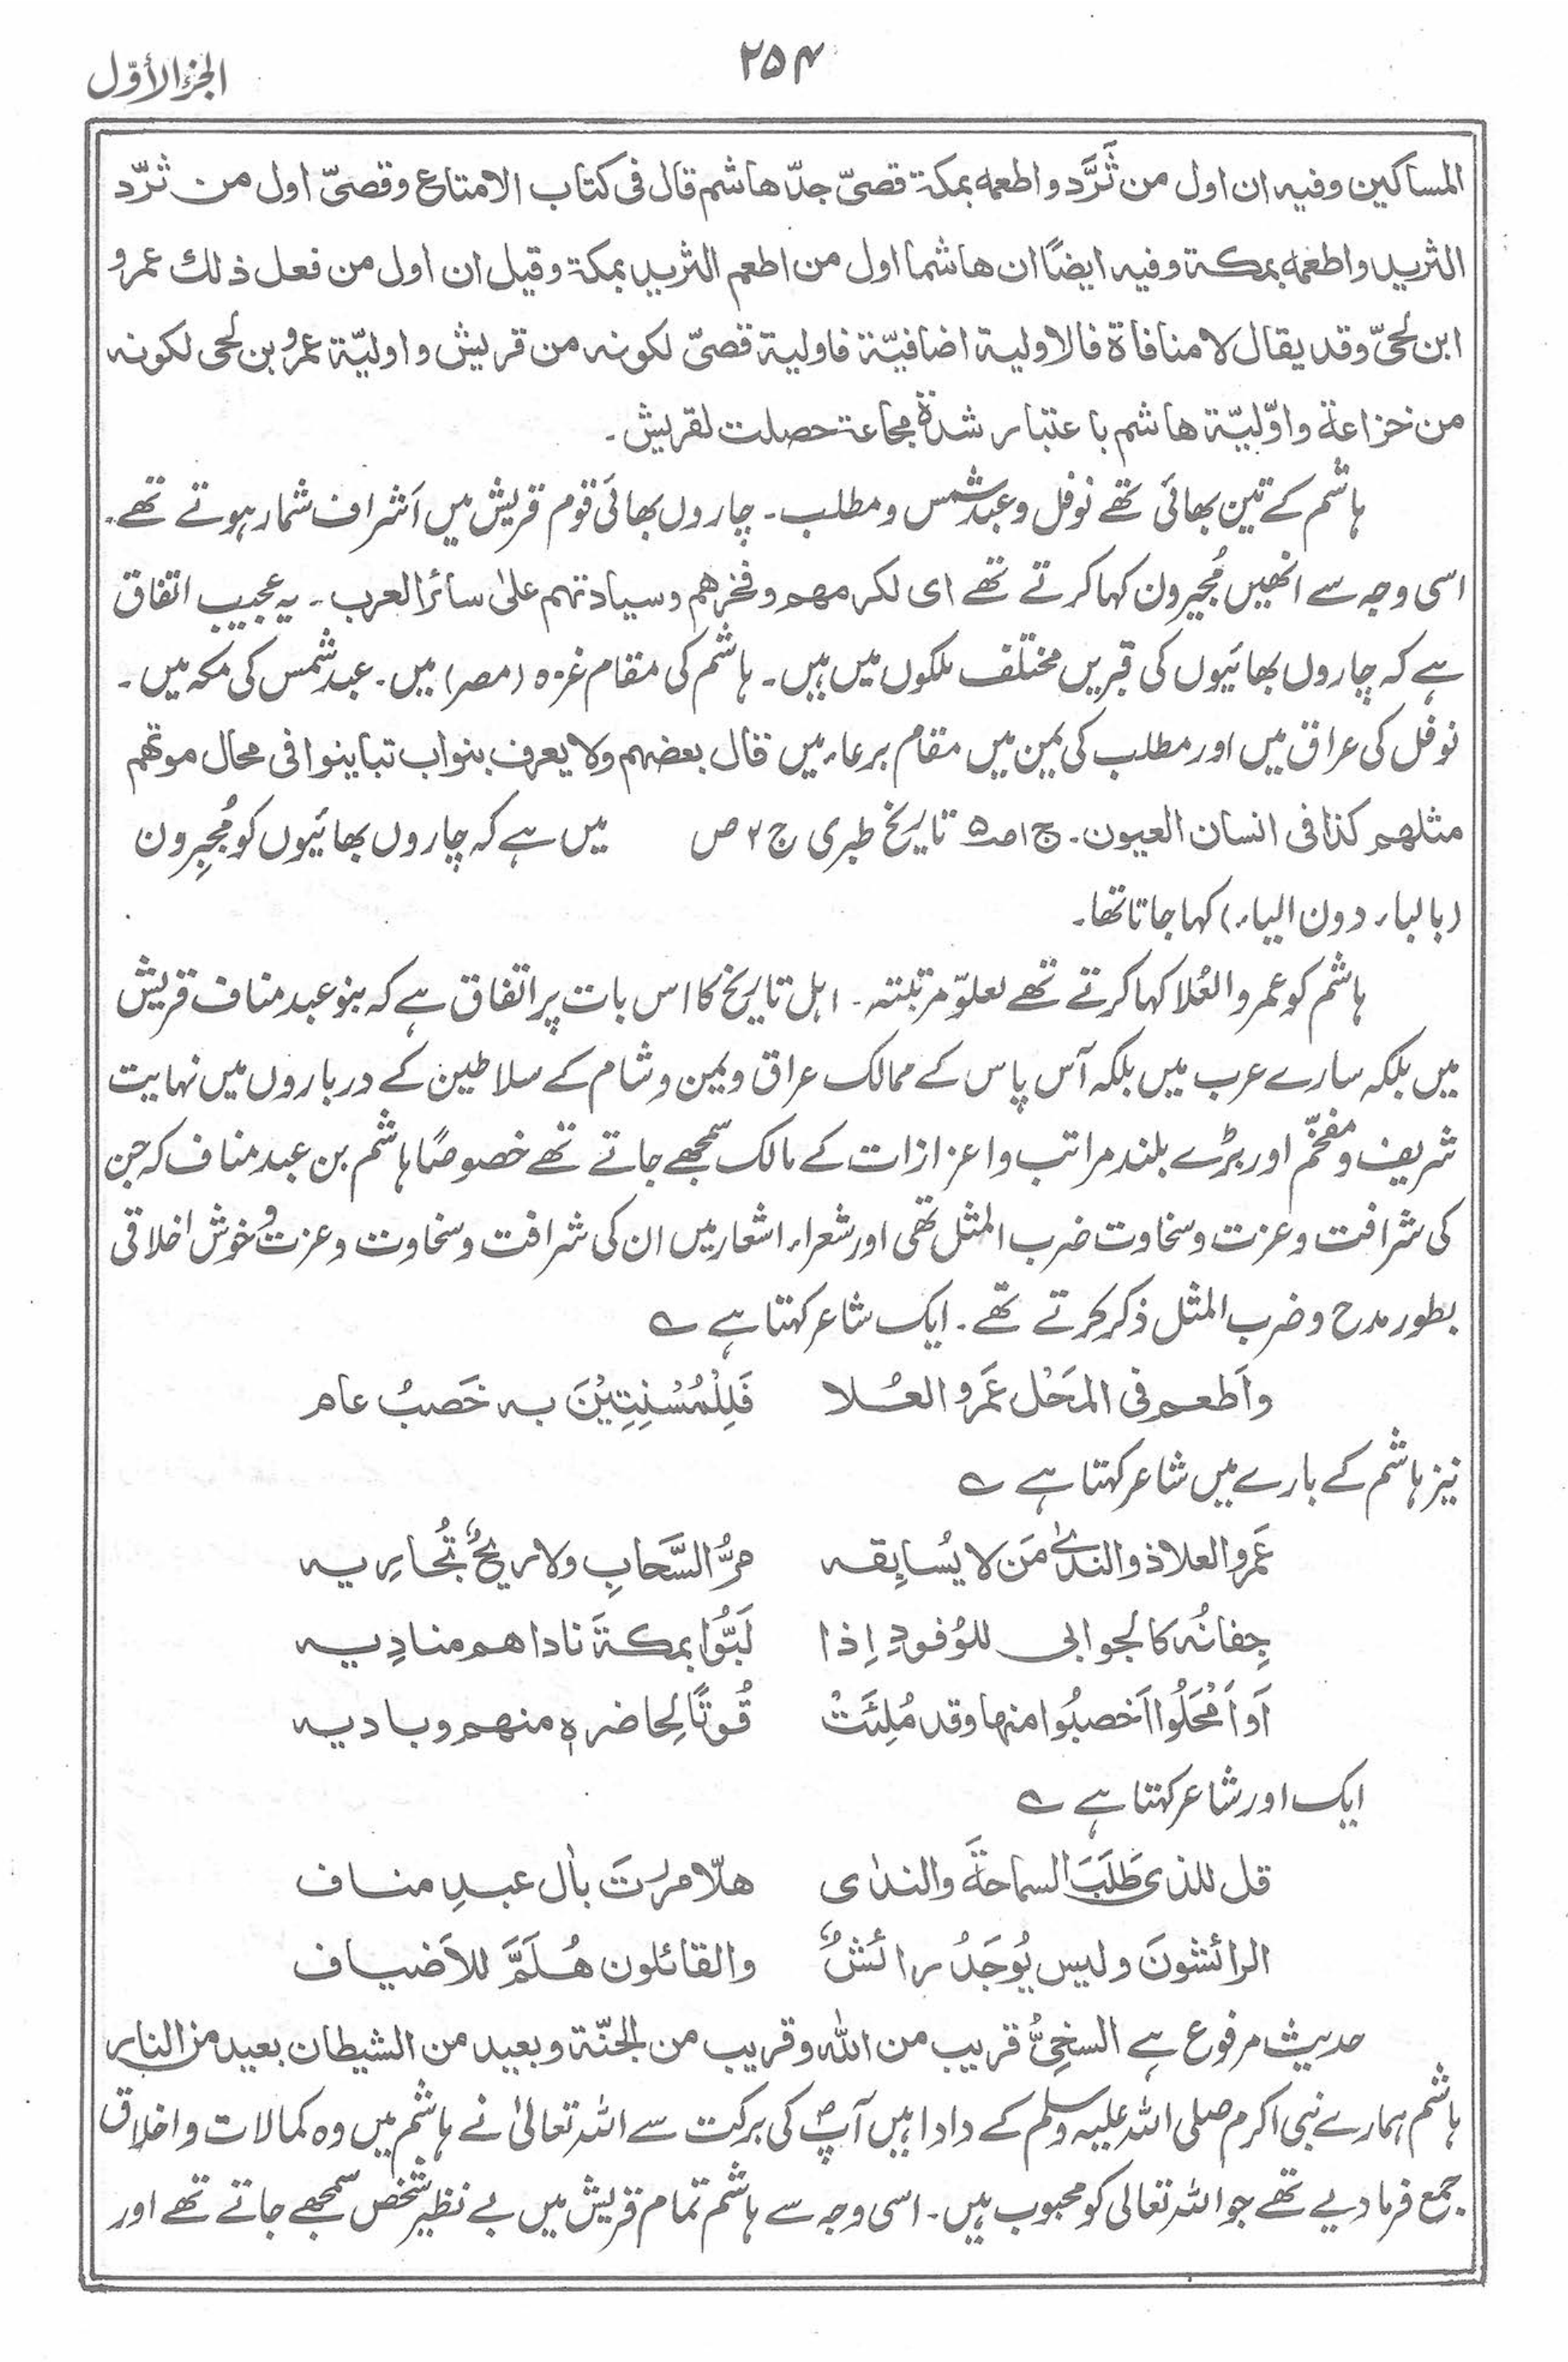 الجزء الأوّل
۲۵۴
المساكين وفيه ان اول من ثَرَّد واطعمه بمكة قصیّ جدّ هاشم قال فى كتاب الامتاع وقصیّ اول من ثرّد
الثريد واطعمه بمكة وفيه ايضًا ان هاشما اول من اطعم الثريد بمكة وقيل ان اول من فعل ذلك عمرو
ابن لحىّ وقد يقال لا منافاة فالاولية اضافيّة فاولية قصیّ لكونه من قريش واوليّة عمرو بن لحى لكونه
من خزاعة واوّليّة هاشم باعتبار شدة مجاعة حصلت لقريش ۔
ہاشم کے تین بھائی تھے نوفل و عبد شمس و مطلب ۔ چاروں بھائی قوم قریش میں اَشراف شمار ہوتے تھے۔
اسی وجہ سے انھیں مُجیرون کہا کرتے تھے ای لكرمهم وفخرهم وسيادتهم علىٰ سائر العرب ۔ یہ عجیب اتفاق
ہے کہ چاروں بھائیوں کی قبریں مختلف ملکوں میں ہیں ۔ ہاشم کی مقام غزہ (مصر) میں ۔ عبد شمس کی مکہ میں ۔
نوفل کی عراق میں اور مطلب کی یمن میں مقام برعاء میں قال بعضهم ولا يعرف بنواب تباينوا فى محال موتهم
مثلهم كذا فى انسان العيون ۔ ج ۱ ص۵ تاریخ طبری ج ۲ ص میں ہے کہ چاروں بھائیوں کو مُجبِرون
(بالباء دون الیاء) کہا جاتا تھا ۔
ہاشم کو عمرو العُلا کہا کرتے تھے لعلوّ مرتبتہ ۔ اہل تاریخ کا اس بات پر اتفاق ہے کہ بنو عبد مناف قریش
میں بلکہ سارے عرب میں بلکہ آس پاس کے ممالک عراق و یمن و شام کے سلاطین کے درباروں میں نہایت
شریف و مفخّم اور بڑے بلند مراتب و اعزازات کے مالک سمجھے جاتے تھے خصوصًا ہاشم بن عبد مناف کہ جن
کی شرافت و عزت و سخاوت ضرب المثل تھی اور شعراء اشعار میں ان کی شرافت و سخاوت و عزت و خوش اخلاقی
بطور مدح و ضرب المثل ذکر کرتے تھے ۔ ایک شاعر کہتا ہے ؎
واَطعم فى المَحْل عَمرو العُلا فَلِلْمُسْنِتِيْنَ به خَصبُ عام
نیز ہاشم کے بارے میں شاعر کہتا ہے ؎
عَمرو العلا ذو الندىٰ مَن لا يُسابِقه مرُّ السَّحابِ ولا ريحٌ تُجاريه
جِفانُه كالجوابى للوُفودِ اِذا لَبَّوْا بمكةَ ناداهم مناديِه
اَو اَمْحَلُوا اَخصبُوا منها وقد مُلِئَتْ قُوتًا لِحاضره منهم وباديه
ایک اور شاعر کہتا ہے ؎
قل للذى طَلَبَ السماحةَ والندٰى هلّا مررتَ بآل عبدِ مناف
الرائشونَ وليس يُوجَدُ رائشٌ والقائلون هُلَمَّ للاَضياف
حدیث مرفوع ہے السخىُّ قريب من الله وقريب من الجنّة وبعيد من الشيطان بعيد من النار
ہاشم ہمارے نبی اکرم صلی اللہ علیہ وسلم کے دادا ہیں آپؐ کی برکت سے اللہ تعالیٰ نے ہاشم میں وہ کمالات و اخلاق
جمع فرما دیے تھے جو اللہ تعالی کو محبوب ہیں ۔ اسی وجہ سے ہاشم تمام قریش میں بے نظیر شخص سمجھے جاتے تھے اور